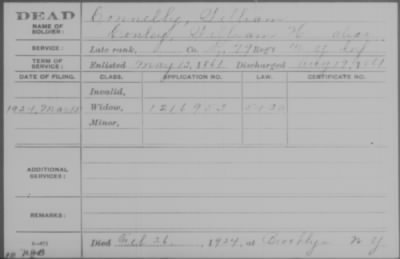 DEAD
NAME OF SOLDIER:
Connelly, William
Conley, William H. alias
SERVICE:
Late rank, Co. 79 Reg't N. Y. Inf
TERM OF SERVICE:
Enlisted May 13, 1861 Discharged 1861
DATE OF FILING. CLASS. APPLICATION NO. LAW. CERTIFICATE NO.
Invalid,
1924, Mar Widow, 1216953
Minor,
ADDITIONAL SERVICES:
REMARKS:
Died Feb 26, 1924, at Brooklyn N. Y.